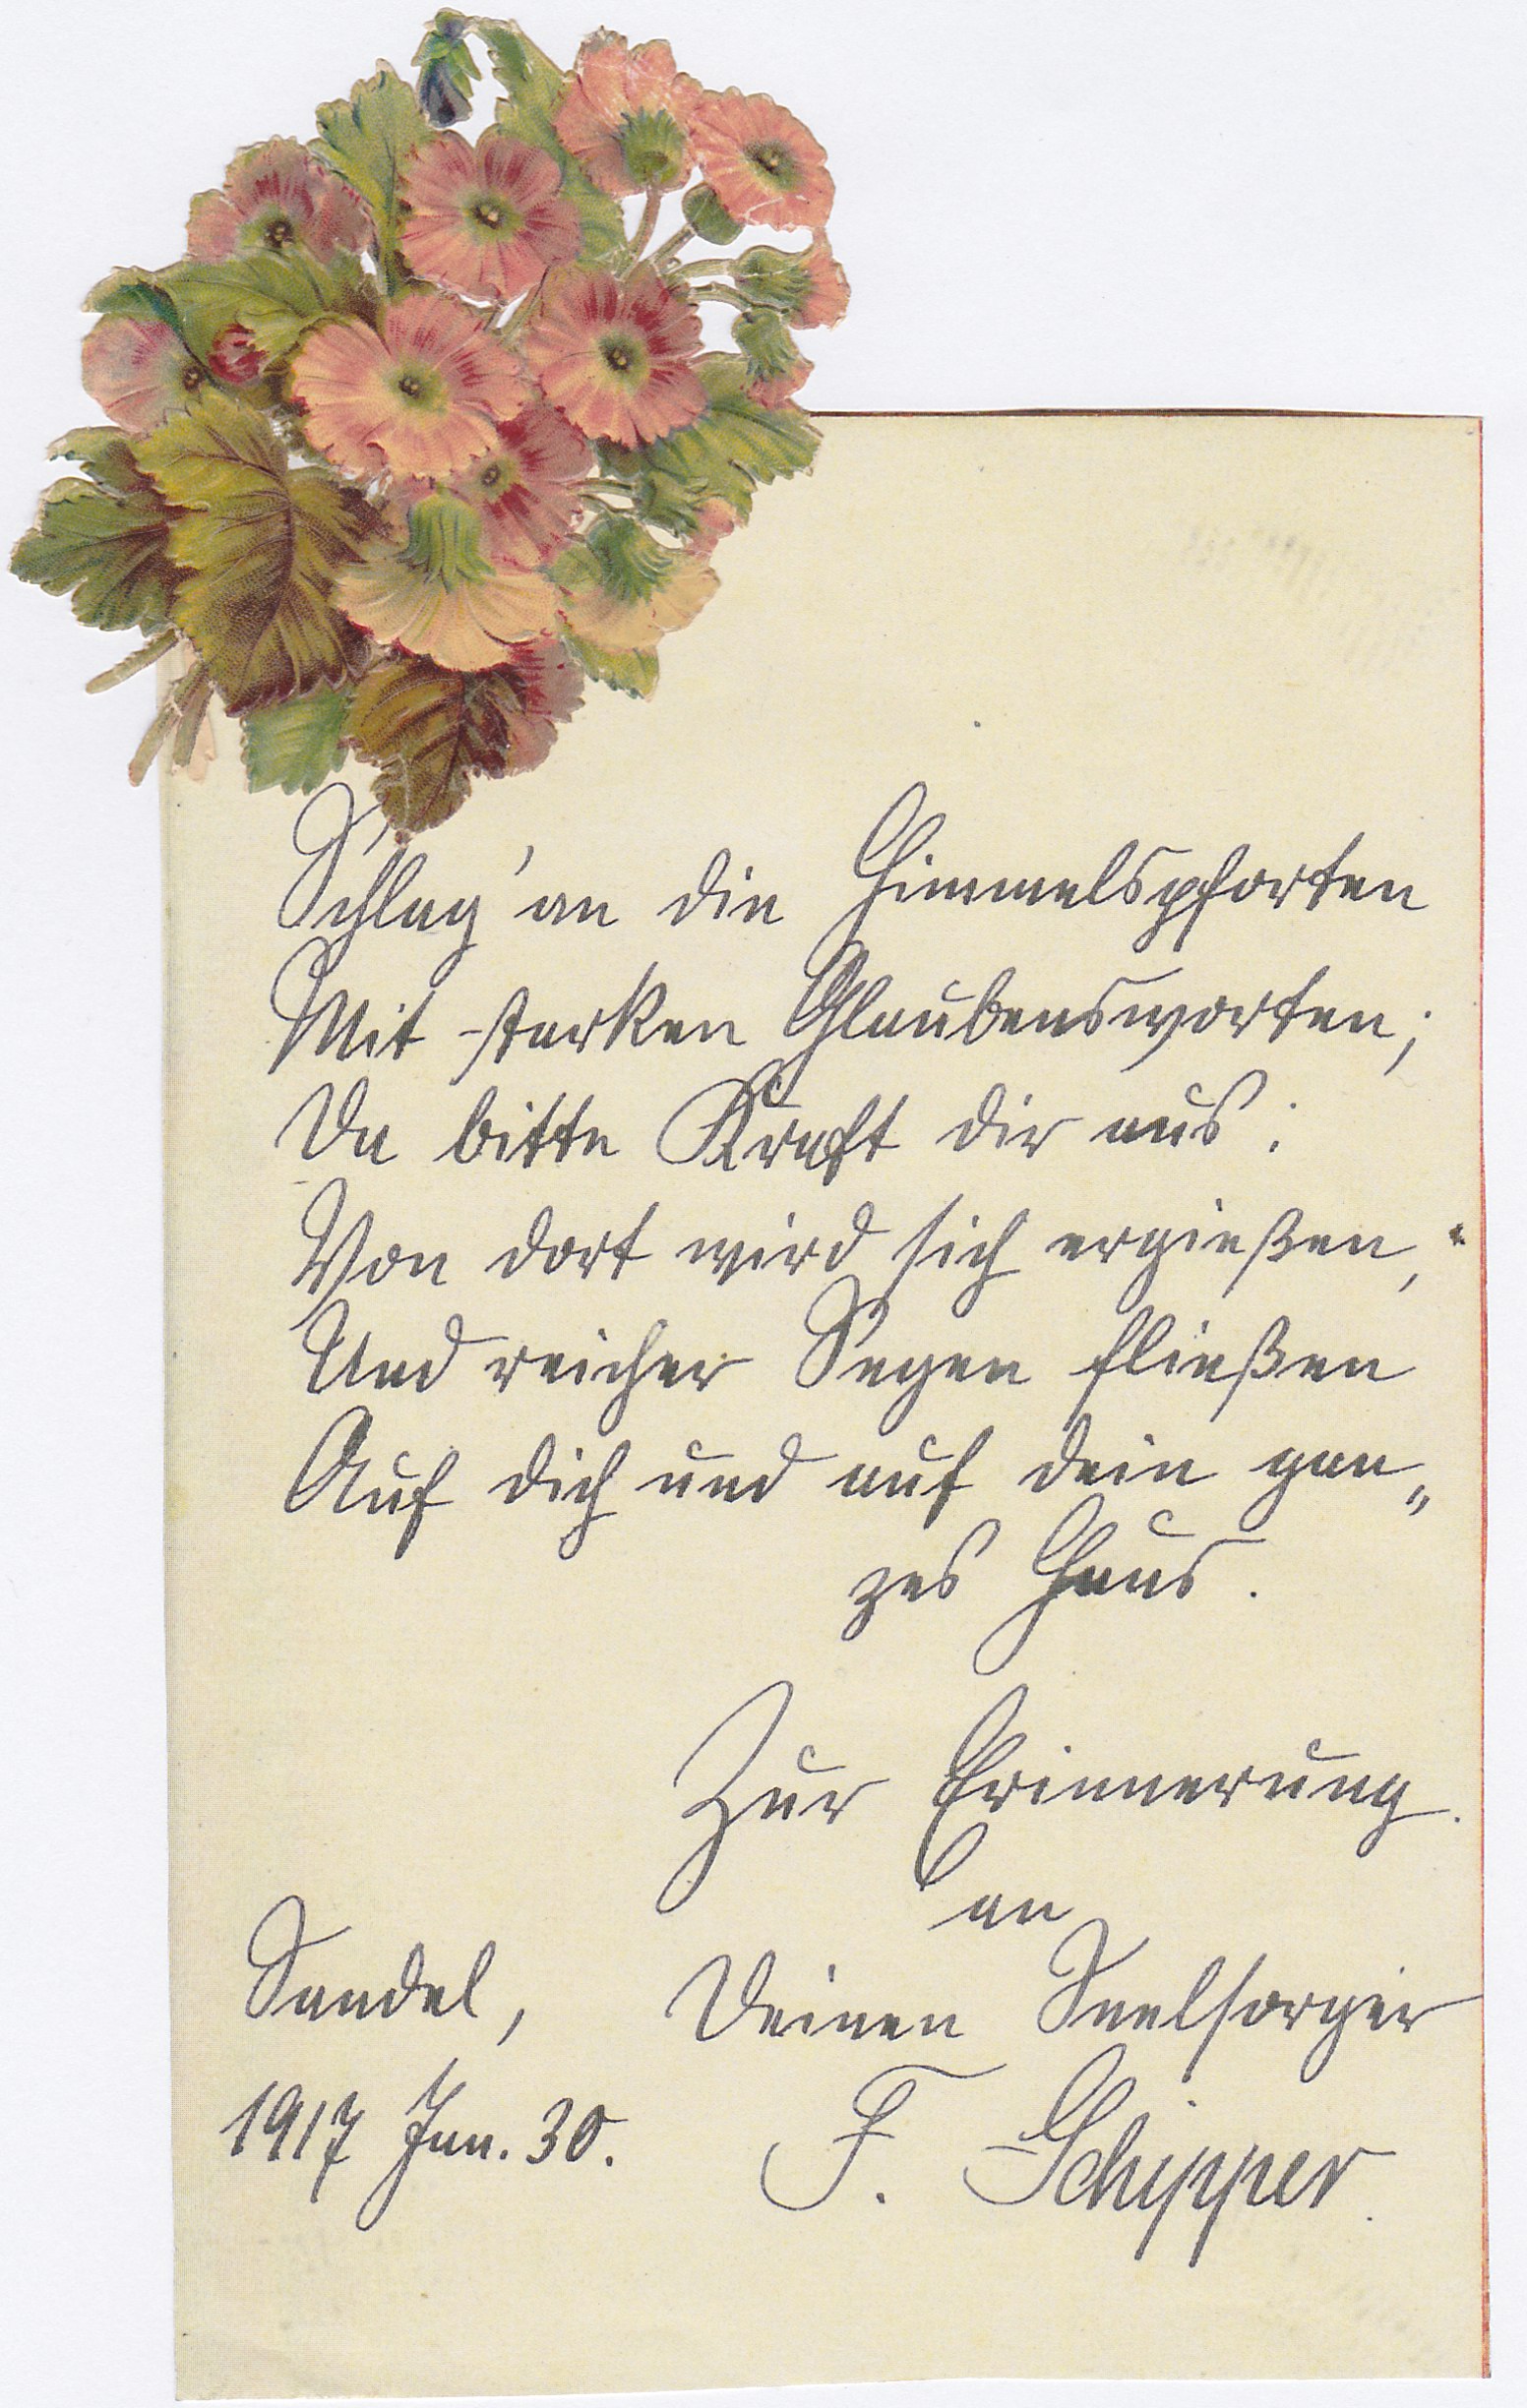 Schlag' an die Himmelspforten
Mit starken Glaubensworten;
Da bitte Kraft dir aus:
Von dort wird sich ergießen,
Und reicher Segen fließen
Auf dich und auf dein gan„
zes Haus.
Zur Erinnerung
an
Sandel, Deinen Seelsorger
1917 Jan. 30. F. Schipper.